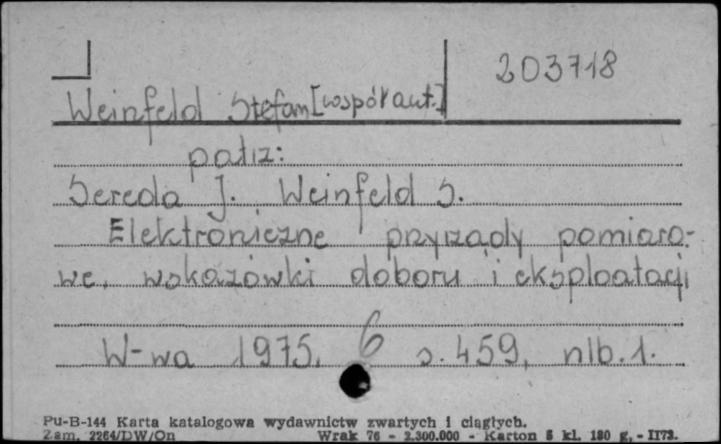 203718
Weinfeld Stefan [współaut.]
patrz:
Sereda J. Weinfeld S.
Elektroniczne przyrządy pomiaro-
we, wskazówki doboru i eksploatacji
W-wa 1975, 6 s. 459, nlb. 1.
Pu-B-144 Karta katalogowa wydawnictw zwartych i ciągłych.
Zam. 2264/DW/On Wrak 76 - 2.300.000 - Karton 5 kl. 180 g, - II73.